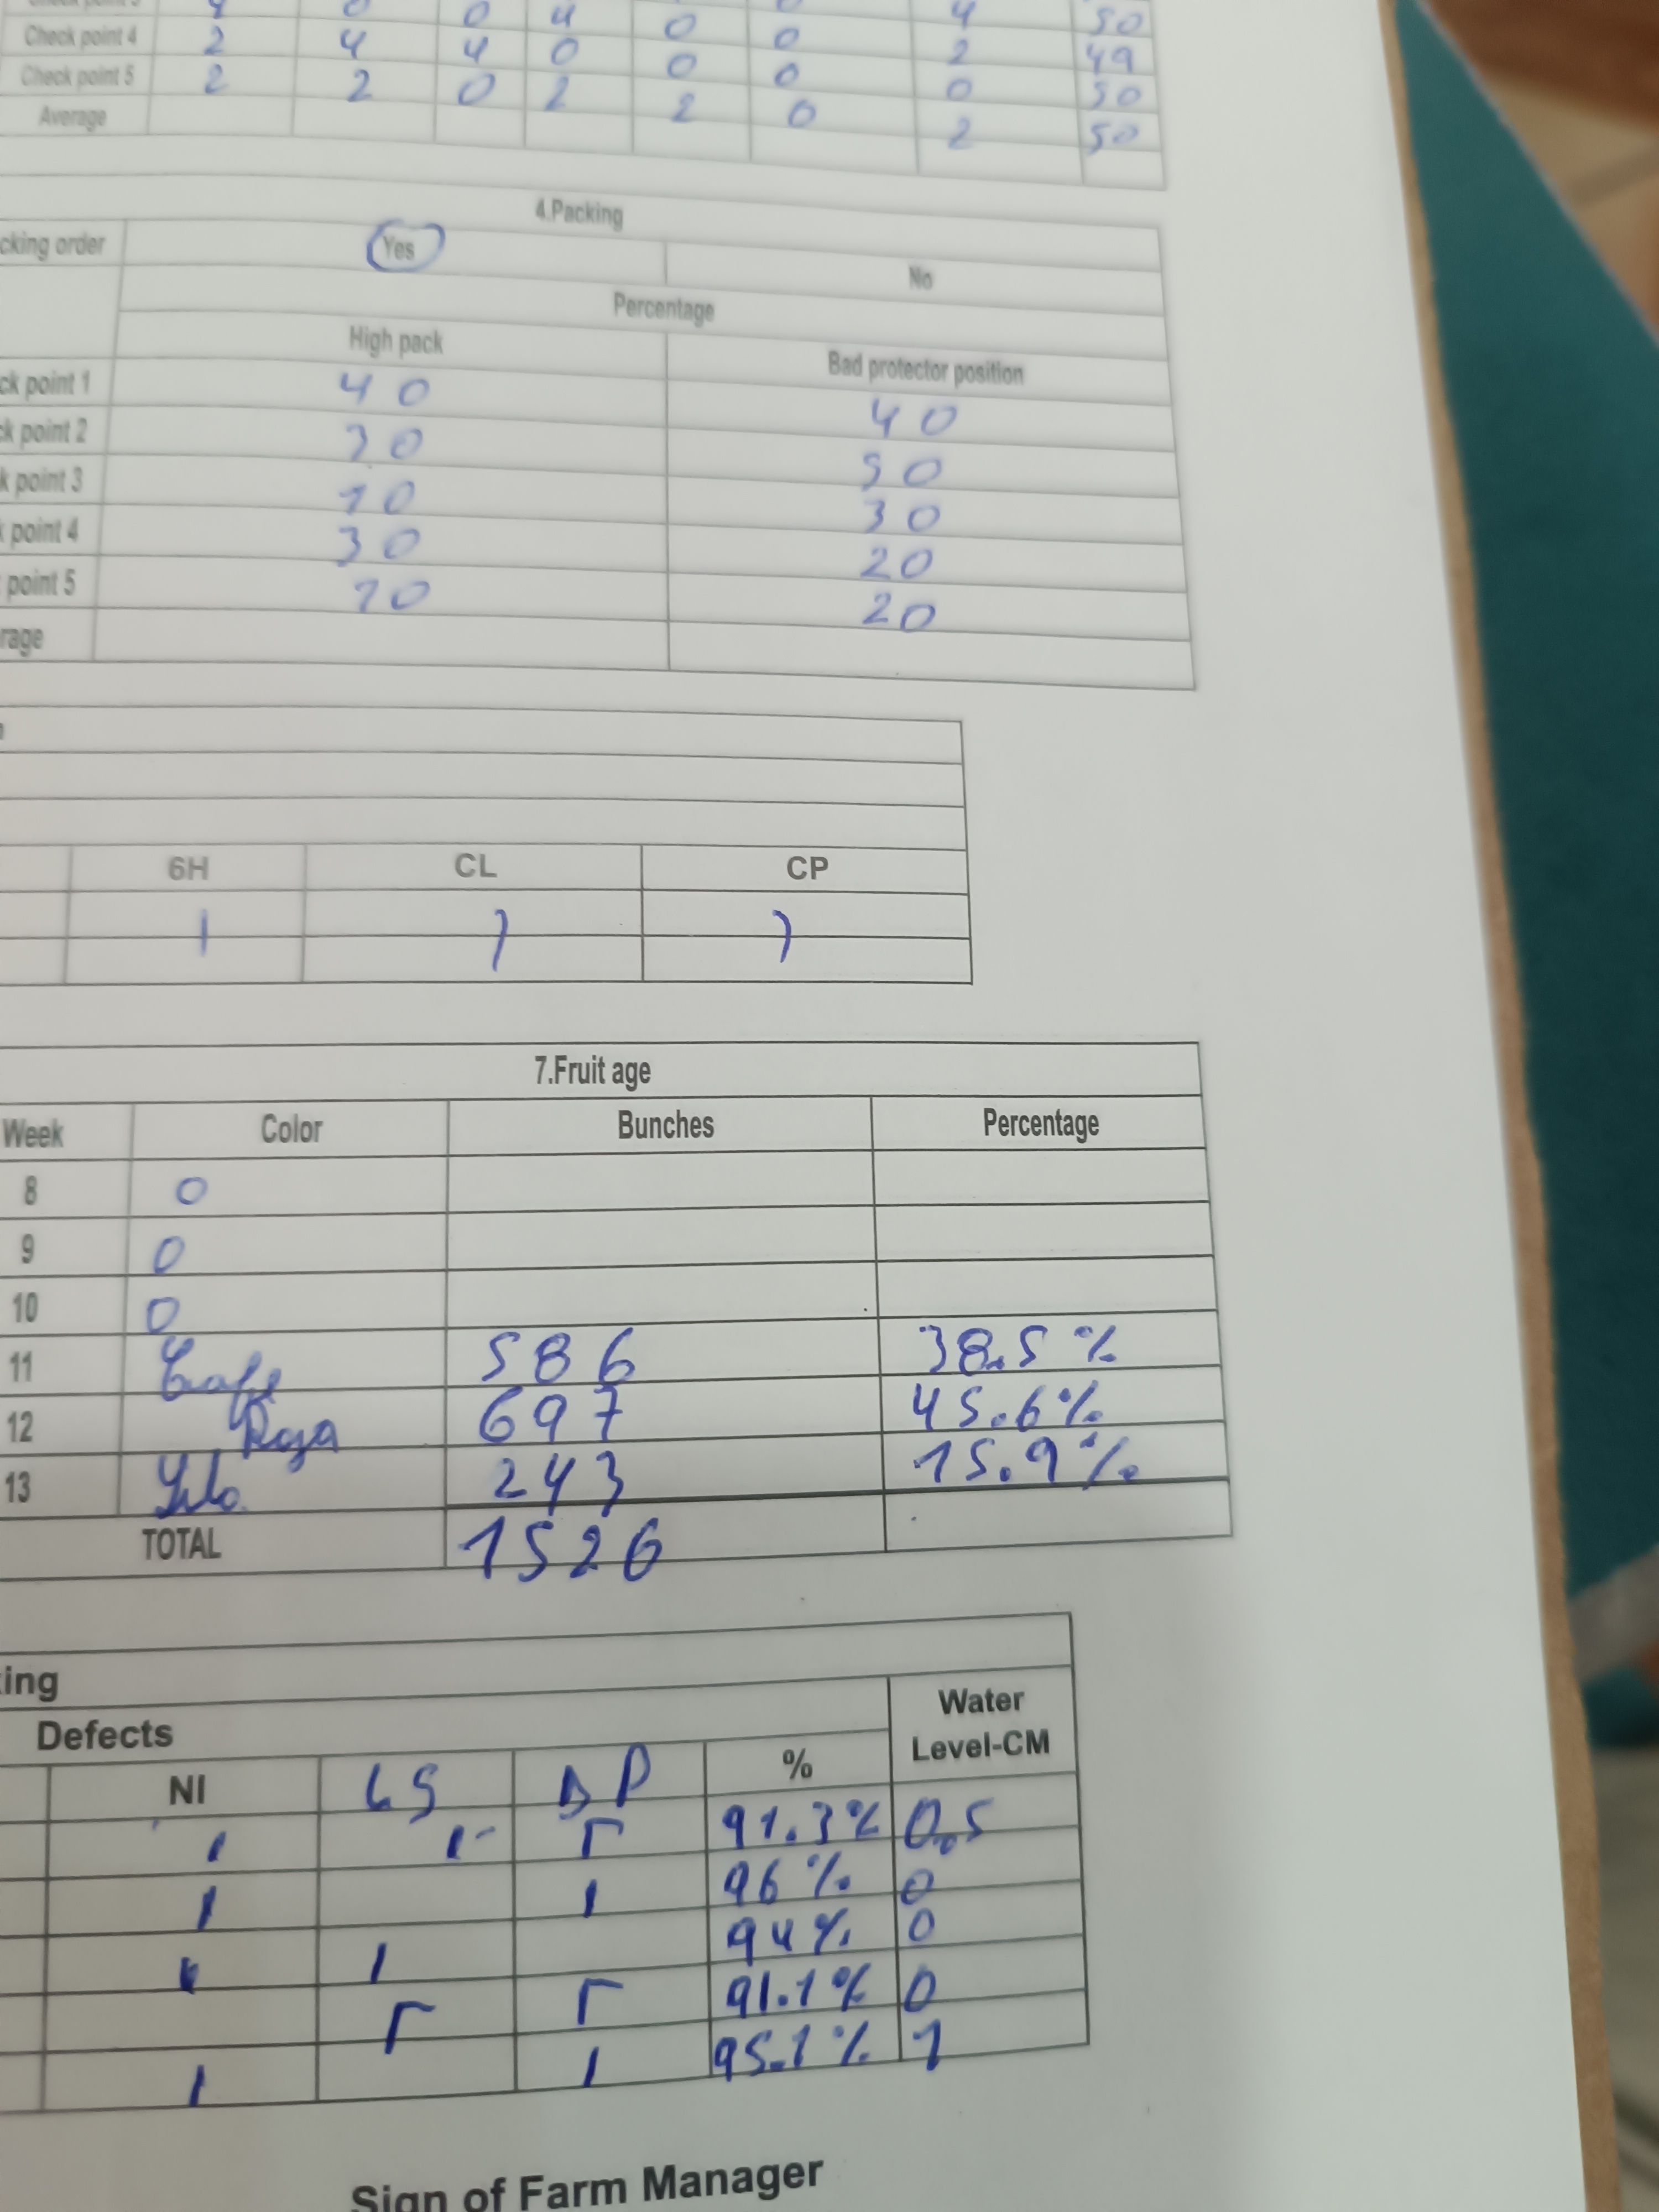 Check point 4 2 4 4 0 0 0 2 49
Check point 5 2 2 0 2 0 0 0 50
Average 2 0 2 50
4.Packing
cking order Yes No
Percentage
High pack Bad protector position
ck point 1 40 40
ck point 2 30 50
k point 3 10 30
point 4 30 20
point 5 20
rage
6H CL CP
7.Fruit age
Week Color Bunches Percentage
8 0
9 0
10 0
11 586 38.5%
12 Roja 697 45.6%
13 243 15.9%
TOTAL 1526
ing
Defects Water
NI LS BP % Level-CM
91.3% 0.5
96% 0
94% 0
91.1% 0
95.1% 1
Sign of Farm Manager